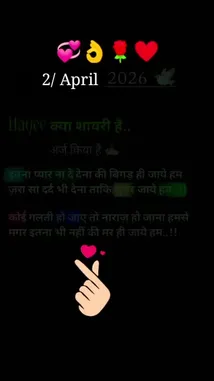 2/ April 2026
Haqee क्या शायरी है..
अर्ज किया है
इतना प्यार ना दे देना की बिगड़ ही जाये हम
ज़रा सा दर्द भी देना ताकि जाये हम
कोई गलती हो जाए तो नाराज़ हो जाना हमसे
मगर इतना भी नहीं की मर ही जाये हम..!!